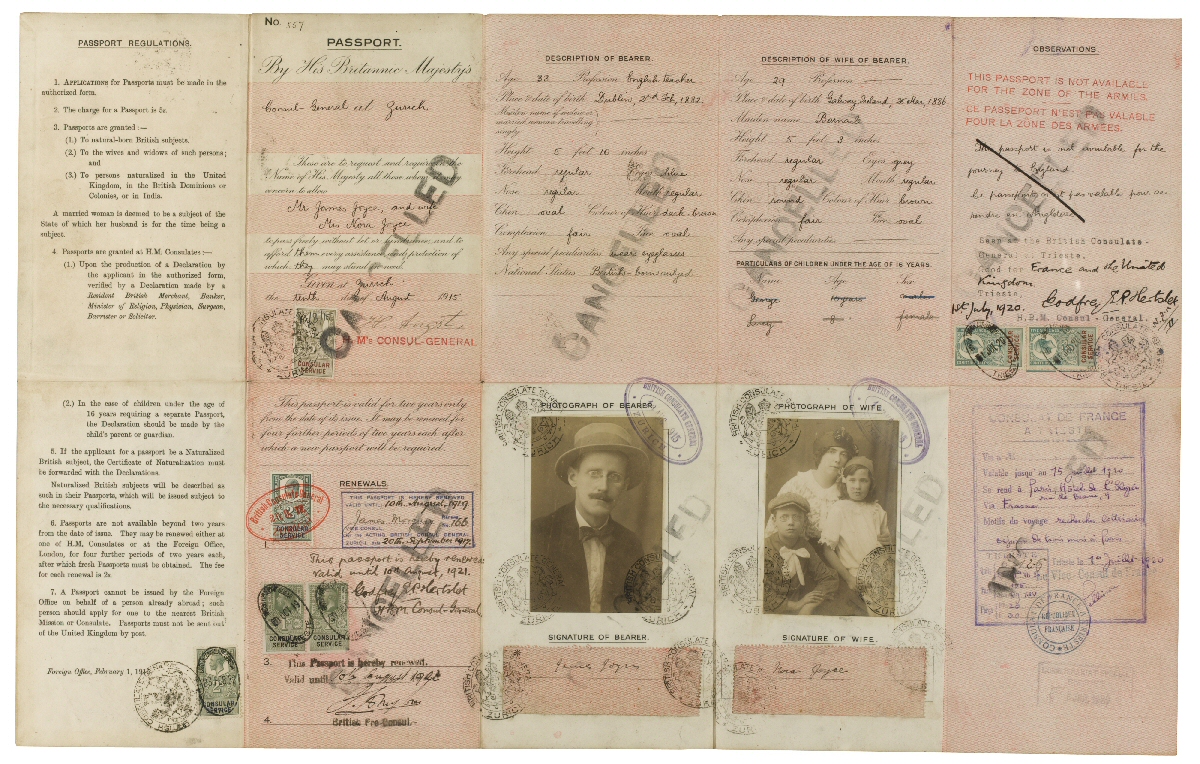 PASSPORT REGULATIONS.
1. APPLICATIONS for Passports must be made in the
authorized form.
2. The charge for a Passport is 5s.
3. Passports are granted :—
(1.) To natural-born British subjects.
(2.) To the wives and widows of such persons;
and
(3.) To persons naturalized in the United
Kingdom, in the British Dominions or
Colonies, or in India.
A married woman is deemed to be a subject of the
State of which her husband is for the time being a
subject.
4 Passports are granted at H.M. Consulates :—
(1.) Upon the production of a Declaration by
the applicant in the authorized form,
verified by a Declaration made by a
Resident British Merchant, Banker,
Minister of Religion, Physician, Surgeon,
Barrister or Solicitor.
(2.) In the case of children under the age of
16 years requiring a separate Passport,
the Declaration should be made by the
child's parent or guardian.
5. If the applicant for a passport be a Naturalized
British subject, the Certificate of Naturalization must
be forwarded with the Declarations.
Naturalized British subjects will be described as
such in their Passports, which will be issued subject to
the necessary qualifications.
6. Passports are not available beyond two years
from the date of issue. They may be renewed either at
one of H.M. Consulates or at the Foreign Office,
London, for four further periods of two years each,
after which fresh Passports must be obtained. The fee
for each renewal is 2s.
7. A Passport cannot be issued by the Foreign
Office on behalf of a person already abroad; such
person should apply for one to the nearest British
Mission or Consulate. Passports must not be sent out
of the United Kingdom by post.
Foreign Office, February 1, 1915
CONSULAR
SERVICE
No. 557
PASSPORT.
By His Britannic Majesty's
Consul-General at Zurich
These are to request and require in the
Name of His Majesty all those whom it may
concern to allow
Mr James Joyce, and wife
Mrs Nora Joyce
to pass freely without let or hindrance, and to
afford them every assistance and protection of
which they may stand in need.
Given at Zurich
the tenth day of August 1915
H.M's CONSUL-GENERAL
CONSULAR
SERVICE
CANCELLED
This passport is valid for two years only
from the date of its issue. It may be renewed for
four further periods of two years each after
which a new passport will be required.
RENEWALS.
THIS PASSPORT IS HEREBY RENEWED
VALID UNTIL 10th August, 1919
VICE CONSUL
ACTING BRITISH CONSUL GENERAL
ZURICH 20th September 1917
CONSULAR
SERVICE
1.
This passport is hereby renewed
valid until 10th August, 1921.
Godfrey Hertslet
HBM Consul-General
CONSULAR
SERVICE
CONSULAR
SERVICE
3. This Passport is hereby renewed.
Valid until 10th August
British Pro-Consul.
4.
DESCRIPTION OF BEARER.
Age 33 Profession English teacher
Place & date of birth Dublin, 2nd Feb, 1882
Maiden name if widow or
married woman travelling
singly
Height 5 feet 10 inches
Forehead regular Eyes blue
Nose regular Mouth regular
Chin oval Colour of Hair dark brown
Complexion fair Face oval
Any special peculiarities wears eyeglasses
National Status British-born subject
CANCELLED
PHOTOGRAPH OF BEARER
SIGNATURE OF BEARER.
James Joyce
DESCRIPTION OF WIFE OF BEARER.
Age 29 Profession
Place & date of birth Galway, Ireland, Mar, 1886
Maiden name Barnacle
Height 5 feet 3 inches
Forehead regular Eyes grey
Nose regular Mouth regular
Chin round Colour of Hair brown
Complexion fair Face oval
Any special peculiarities
PARTICULARS OF CHILDREN UNDER THE AGE OF 16 YEARS.
Name Age Sex
George
Lucy 8 female
CANCELLED
PHOTOGRAPH OF WIFE
SIGNATURE OF WIFE.
Nora Joyce
OBSERVATIONS
THIS PASSPORT IS NOT AVAILABLE
FOR THE ZONE OF THE ARMIES.
CE PASSEPORT N'EST PAS VALABLE
POUR LA ZÔNE DES ARMÉES.
This passport is not available for the
journey to England
Seen at the British Consulate-
General Trieste.
Good for France and the United
Kingdom.
Trieste,
1st July, 1920.
Godfrey Hertslet
H.B.M. Consul-General.
CANCELLED
CONSULAT DE FRANCE
A TRIESTE
Valable jusqu'au 15 juillet 1920
Se rend à Paris
Via
Motifs du voyage
CONSULAT DE FRANCE
RÉPUBLIQUE
FRANÇAISE